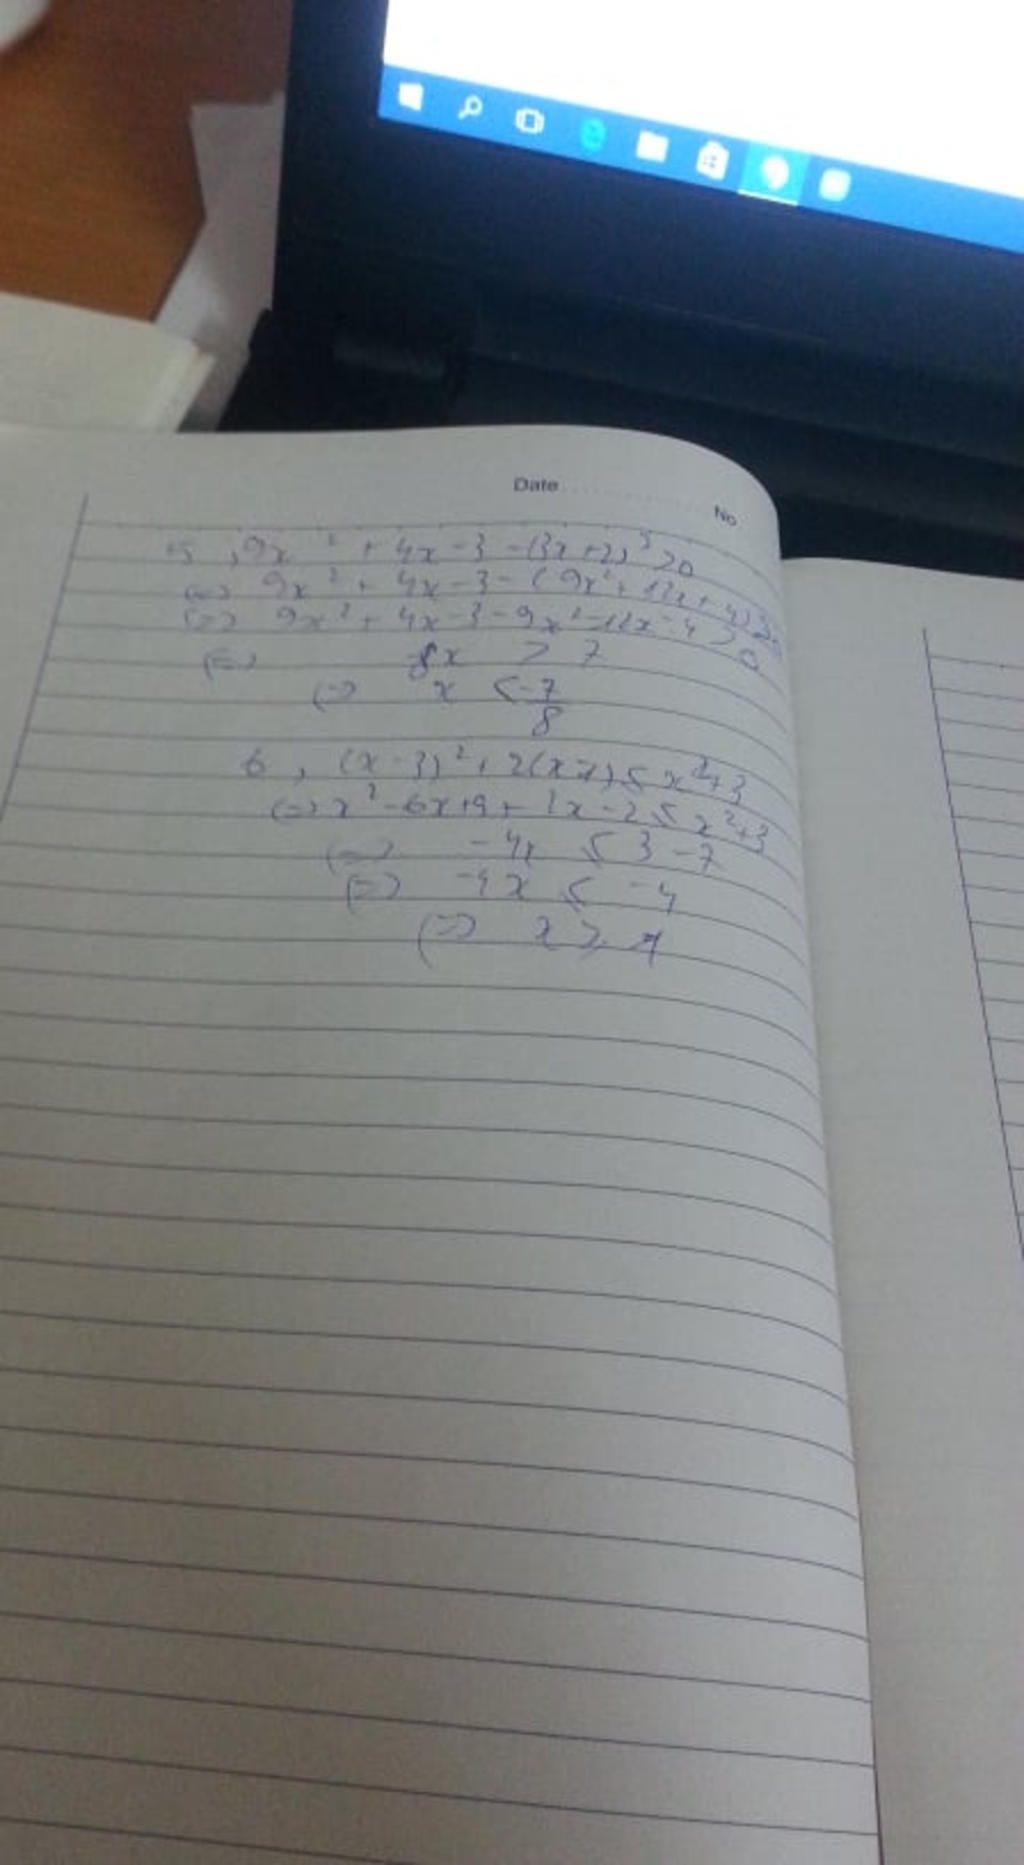 Date
No
5, 9x² + 4x - 3 - (3x+2)² > 0
(=) 9x² + 4x - 3 - (9x² + 12x + 4) > 0
(=) 9x² + 4x - 3 - 9x² - 12x - 4 > 0
(=) -8x > 7
(=) x < -7/8
6, (x-3)² + 2(x-1) ≤ x² + 3
(=) x² - 6x + 9 + 2x - 2 ≤ x² + 3
(=) -4x ≤ 3 - 7
(=) -4x ≤ -4
(=) x ≥ 1